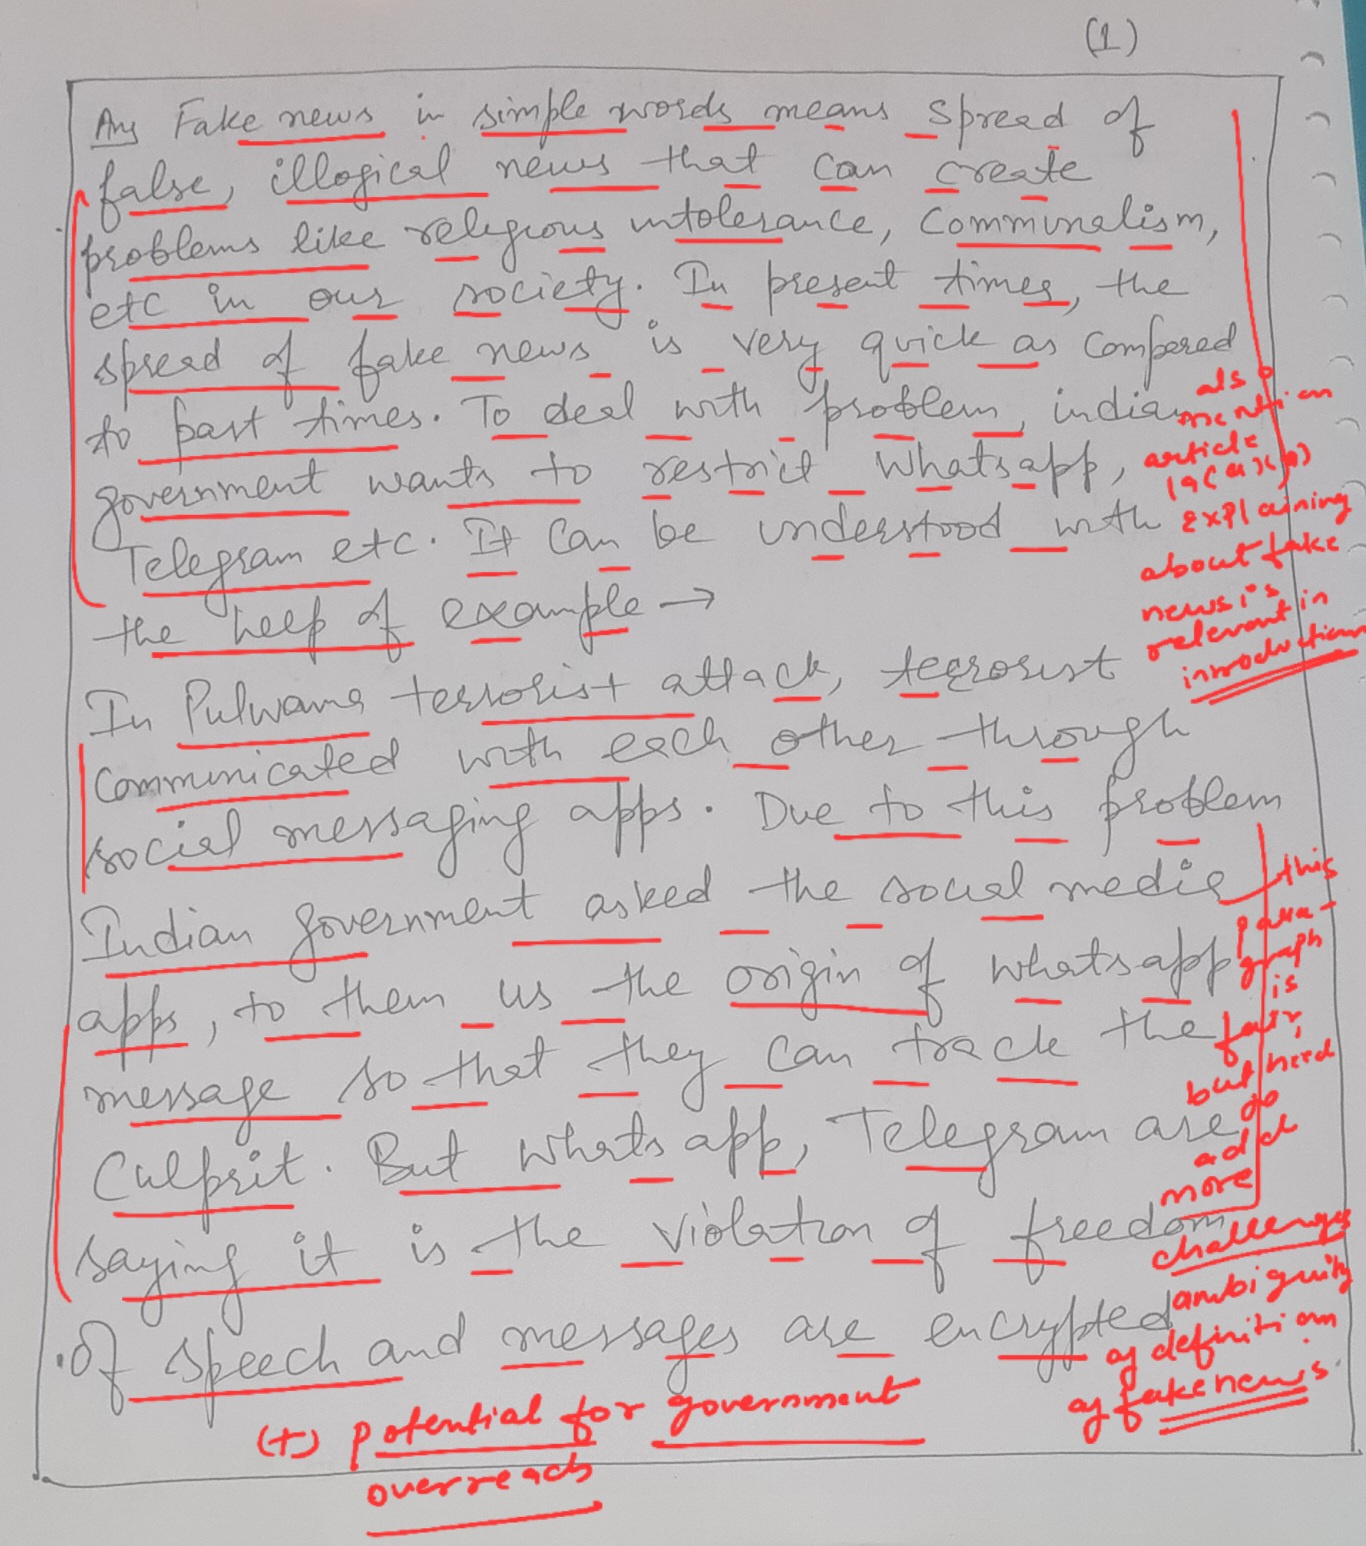 (1)
Ans Fake news in simple words means spread of
false, illogical news that can create
problems like religious intolerance, Communalism,
etc in our society. In present times, the
spread of fake news is very quick as compared
to past times. To deal with problem, indian
government wants to restrict whatsapp,
Telegram etc. It can be understood with
the help of example →
In Pulwama terrorist attack, terrorist
communicated with each other through
social messaging apps. Due to this problem
Indian government asked the social media
apps, to them us the origin of whatsapp
message so that they can track the
Culprit. But whatsapp, Telegram are
saying it is the violation of freedom
of speech and messages are encrypted
also
mention
article
19(a)
explaining
about fake
news is
relevant in
introduction
this
para-
graph
is
fair,
but need
to
add
more
challenges
ambiguity
of definition
of fake news
(+) potential for government
overreach